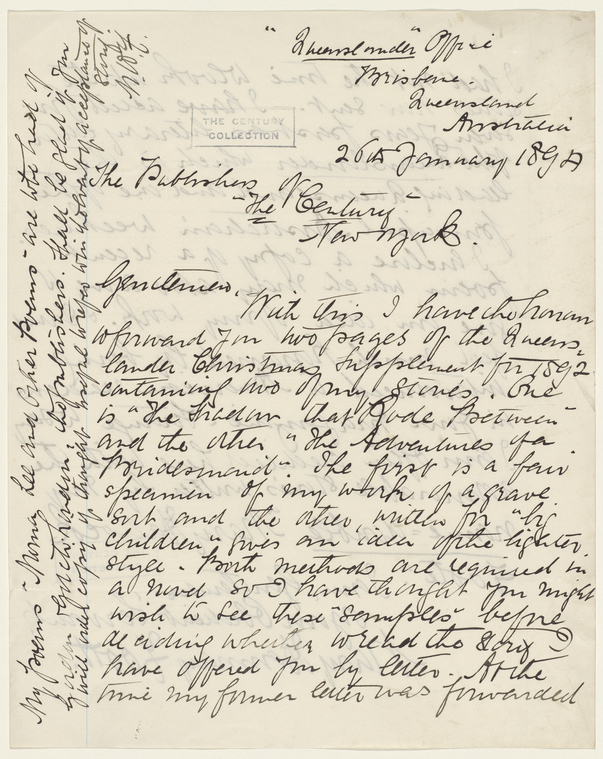 "Queenslander" Office
Brisbane.
Queensland
Australia
26th January 1893
THE CENTURY
COLLECTION
The Publishers of
"The Century"
New York.
Gentlemen,
With this I have the honour
to forward you two pages of the Queens-
lander Christmas Supplement for 1892
containing two of my stories. One
is "The Shadow that Rode Between"
and the other "The Adventures of a
Bridesmaid". The first is a fair
specimen of my work of a grave
sort and the other, written for "big
children" gives an idea of the lighter
style. Both methods are required in
a novel so I have thought you might
wish to see these "samples" before
deciding whether to read the story I
have offered you by letter. At the
time my former letter was forwarded
My poems "Norna Lee and Other Poems" are
Gordon Gotch London the publishers. Shall be glad if you
will order copy of thought in event of acceptance of
story.